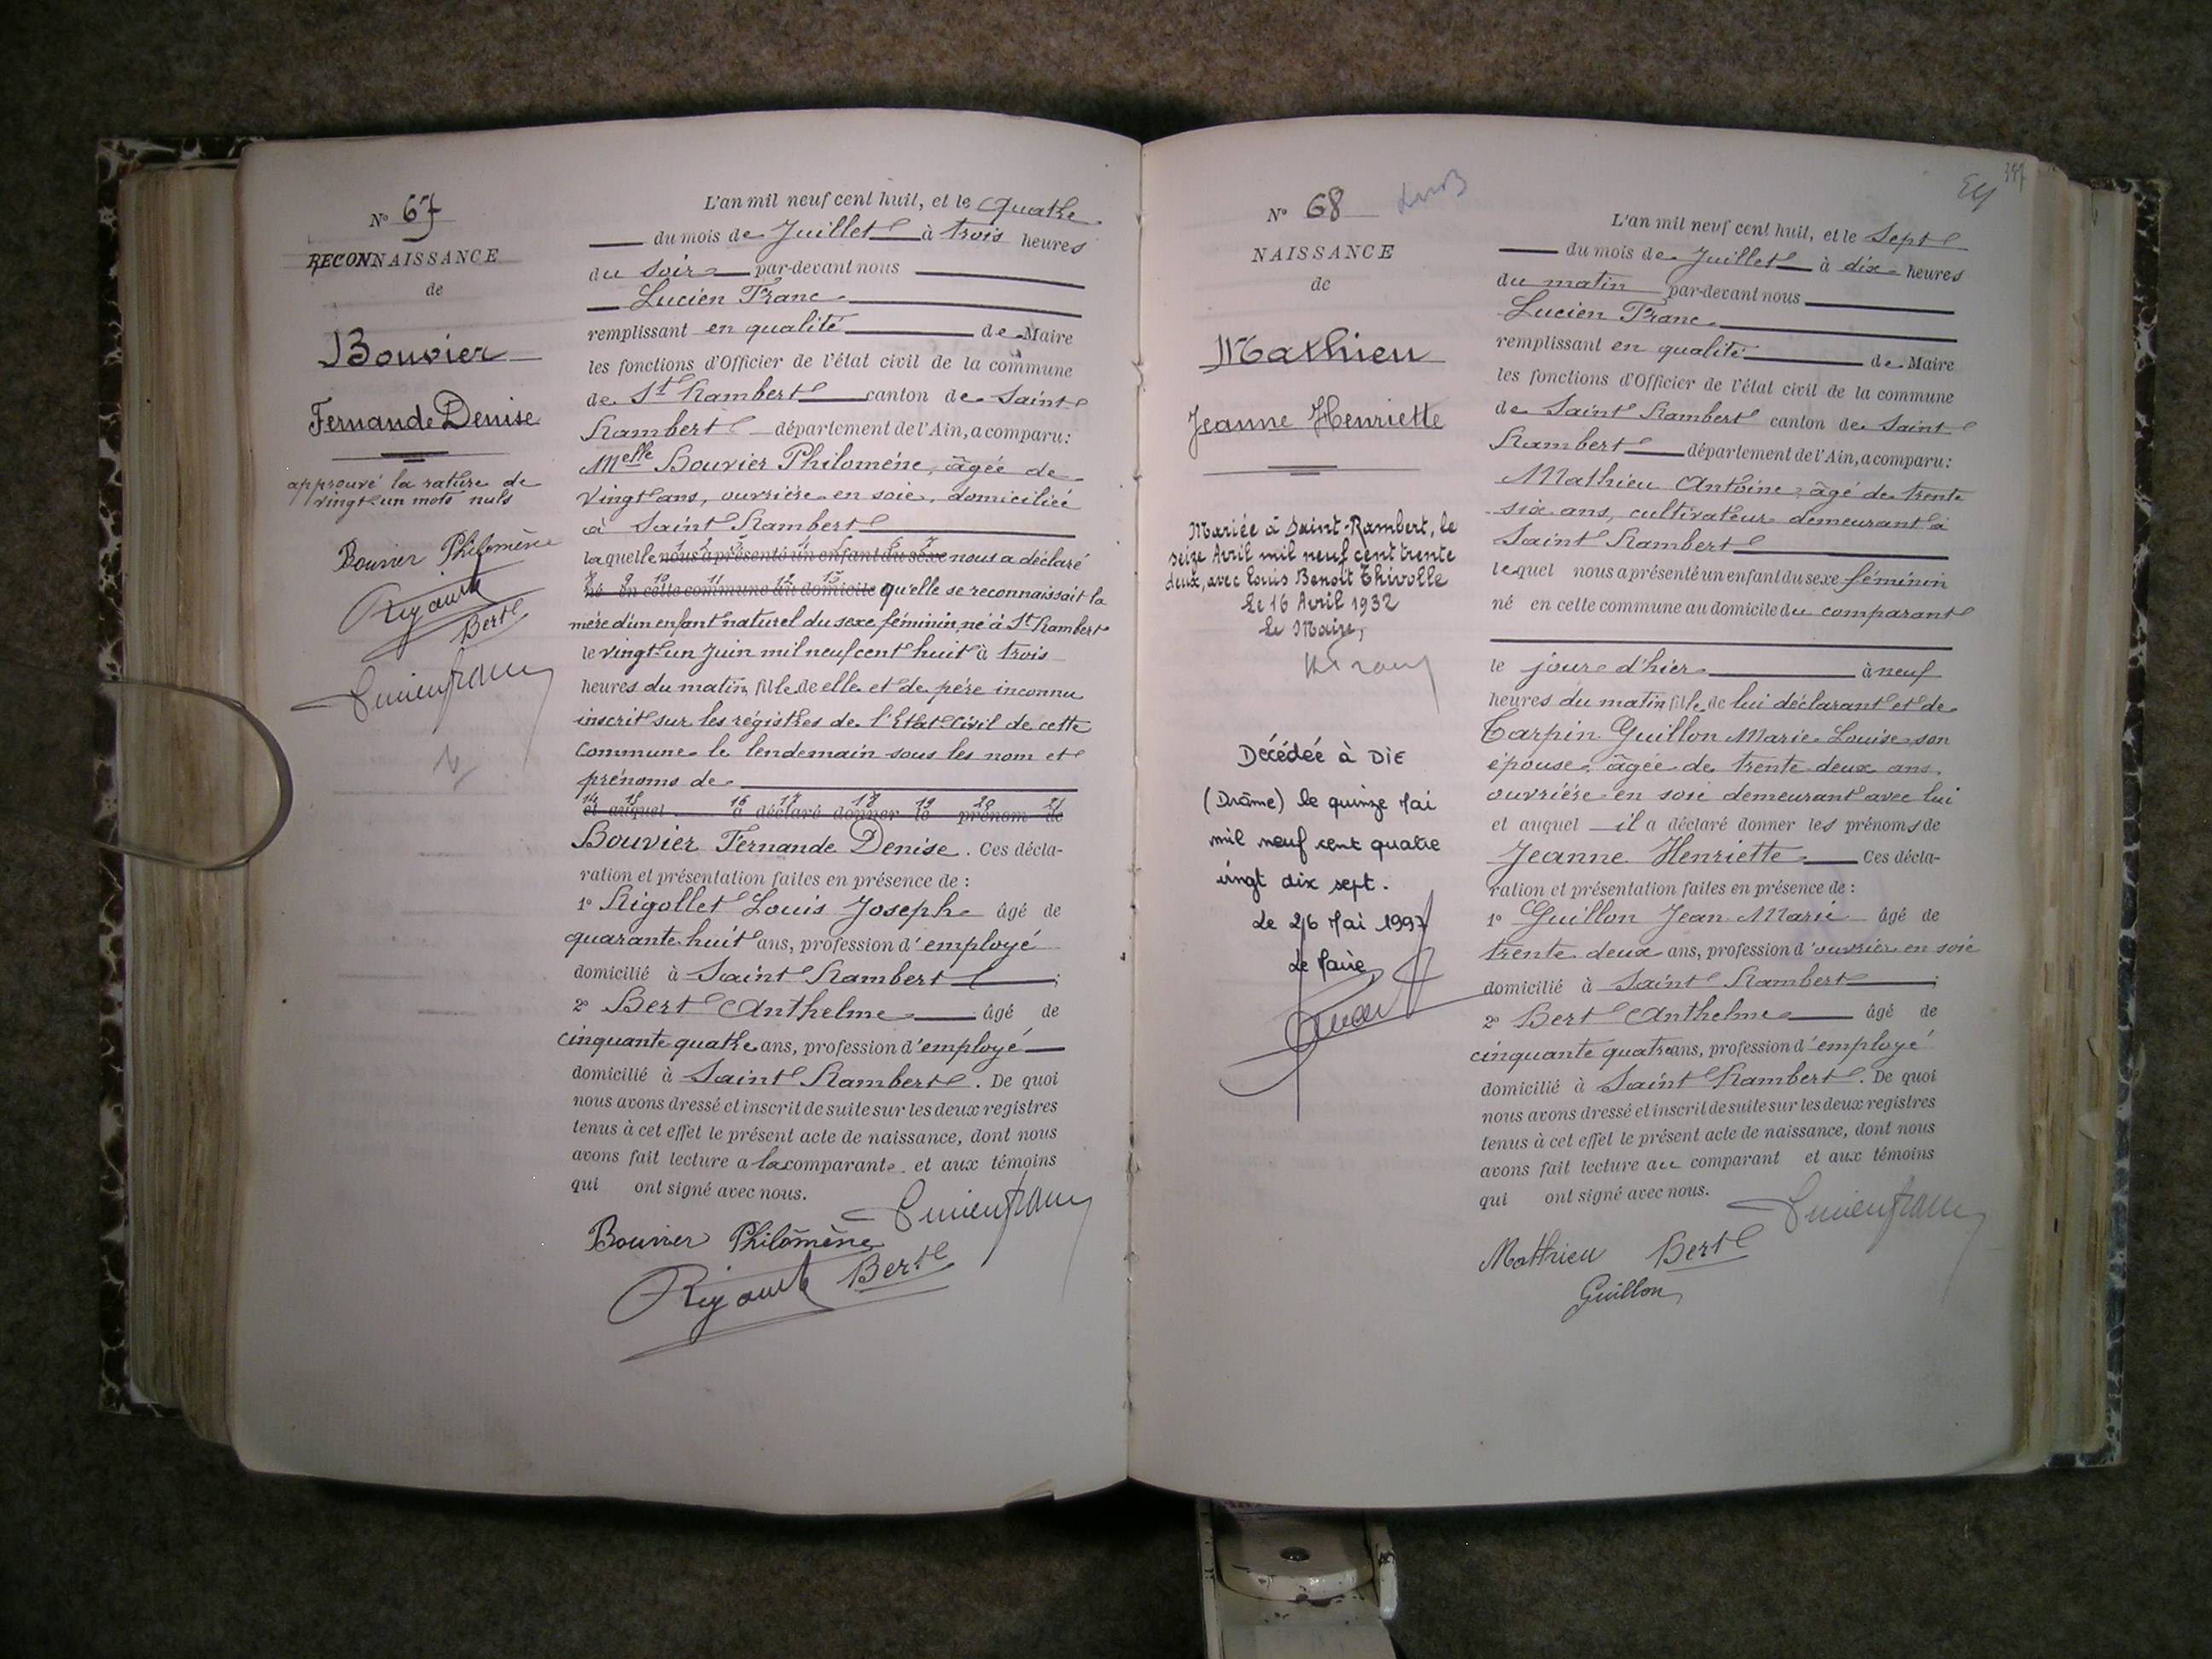 N° 67
RECONNAISSANCE
de
Bouvier
Fernande Denise
approuvé la rature de
vingt-un mots nuls
Bouvier Philomène
Bert
Lucien franc
L'an mil neuf cent huit, et le Quatre
du mois de Juillet à trois heures
du soir par-devant nous
Lucien Franc
remplissant en qualité de Maire
les fonctions d'Officier de l'état civil de la commune
de St Rambert canton de Saint
Rambert département de l'Ain, a comparu :
Melle Bouvier Philomène, âgée de
vingt ans, ouvrière en soie, domiciliée
à Saint Rambert
1 2 3 4 5 6 7
laquelle nous a présenté un enfant du sexe nous a déclaré
8 9 10 11 12 13
né en cette commune au domicile qu'elle se reconnaissait la
mère d'un enfant naturel du sexe féminin, né à St Rambert
le vingt-un juin mil neuf cent huit à trois
heures du matin, fille de elle et de père inconnu
inscrit sur les régistres de l'Etat-Civil de cette
commune le lendemain sous les nom et
prénoms de
14 15 16 17 18 19 20 21
et auquel a déclaré donner le prénom de
Bouvier Fernande Denise. Ces décla-
ration et présentation faites en présence de :
1° Rigollet Louis Joseph âgé de
quarante huit ans, profession d'employé
domicilié à Saint Rambert ;
2° Bert Anthelme âgé de
cinquante quatre ans, profession d'employé
domicilié à Saint Rambert. De quoi
nous avons dressé et inscrit de suite sur les deux registres
tenus à cet effet le présent acte de naissance, dont nous
avons fait lecture a la comparante et aux témoins
qui ont signé avec nous.
Lucien franc
Bouvier Philomène
Bert
N° 68
NAISSANCE
de
Mathieu
Jeanne Henriette
Mariée à Saint-Rambert, le
seize Avril mil neuf cent trente
deux, avec Louis Benoît Thivolle
Le 16 Avril 1932
Le Maire,
Décédée à DIE
(Drôme) le quinze Mai
mil neuf cent quatre
vingt dix sept.
Le 26 Mai 1997
Le Maire
L'an mil neuf cent huit, et le Sept
du mois de Juillet à dix heures
du matin par-devant nous
Lucien Franc
remplissant en qualité de Maire
les fonctions d'Officier de l'état civil de la commune
de Saint Rambert canton de Saint
Rambert département de l'Ain, a comparu :
Mathieu Antoine, âgé de trente
six ans, cultivateur demeurant à
Saint Rambert
lequel nous a présenté un enfant du sexe féminin
né en cette commune au domicile du comparant
le jour d'hier à neuf
heures du matin fille de lui déclarant et de
Carpin Guillon Marie Louise, son
épouse, âgée de trente deux ans,
ouvrière en soie demeurant avec lui
et auquel il a déclaré donner les prénoms de
Jeanne Henriette Ces décla-
ration et présentation faites en présence de :
1° Guillon Jean Marie âgé de
trente deux ans, profession d'ouvrier en soie
domicilié à Saint Rambert ;
2° Bert Anthelme âgé de
cinquante quatre ans, profession d'employé
domicilié à Saint Rambert. De quoi
nous avons dressé et inscrit de suite sur les deux registres
tenus à cet effet le présent acte de naissance, dont nous
avons fait lecture au comparant et aux témoins
qui ont signé avec nous.
Lucien franc
Mathieu Bert
Guillon